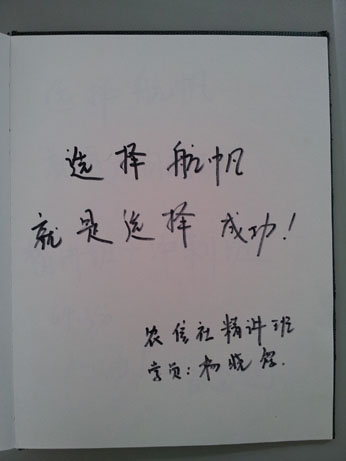 选择航帆
就是选择成功!
农信社精讲班
学员:杨晓